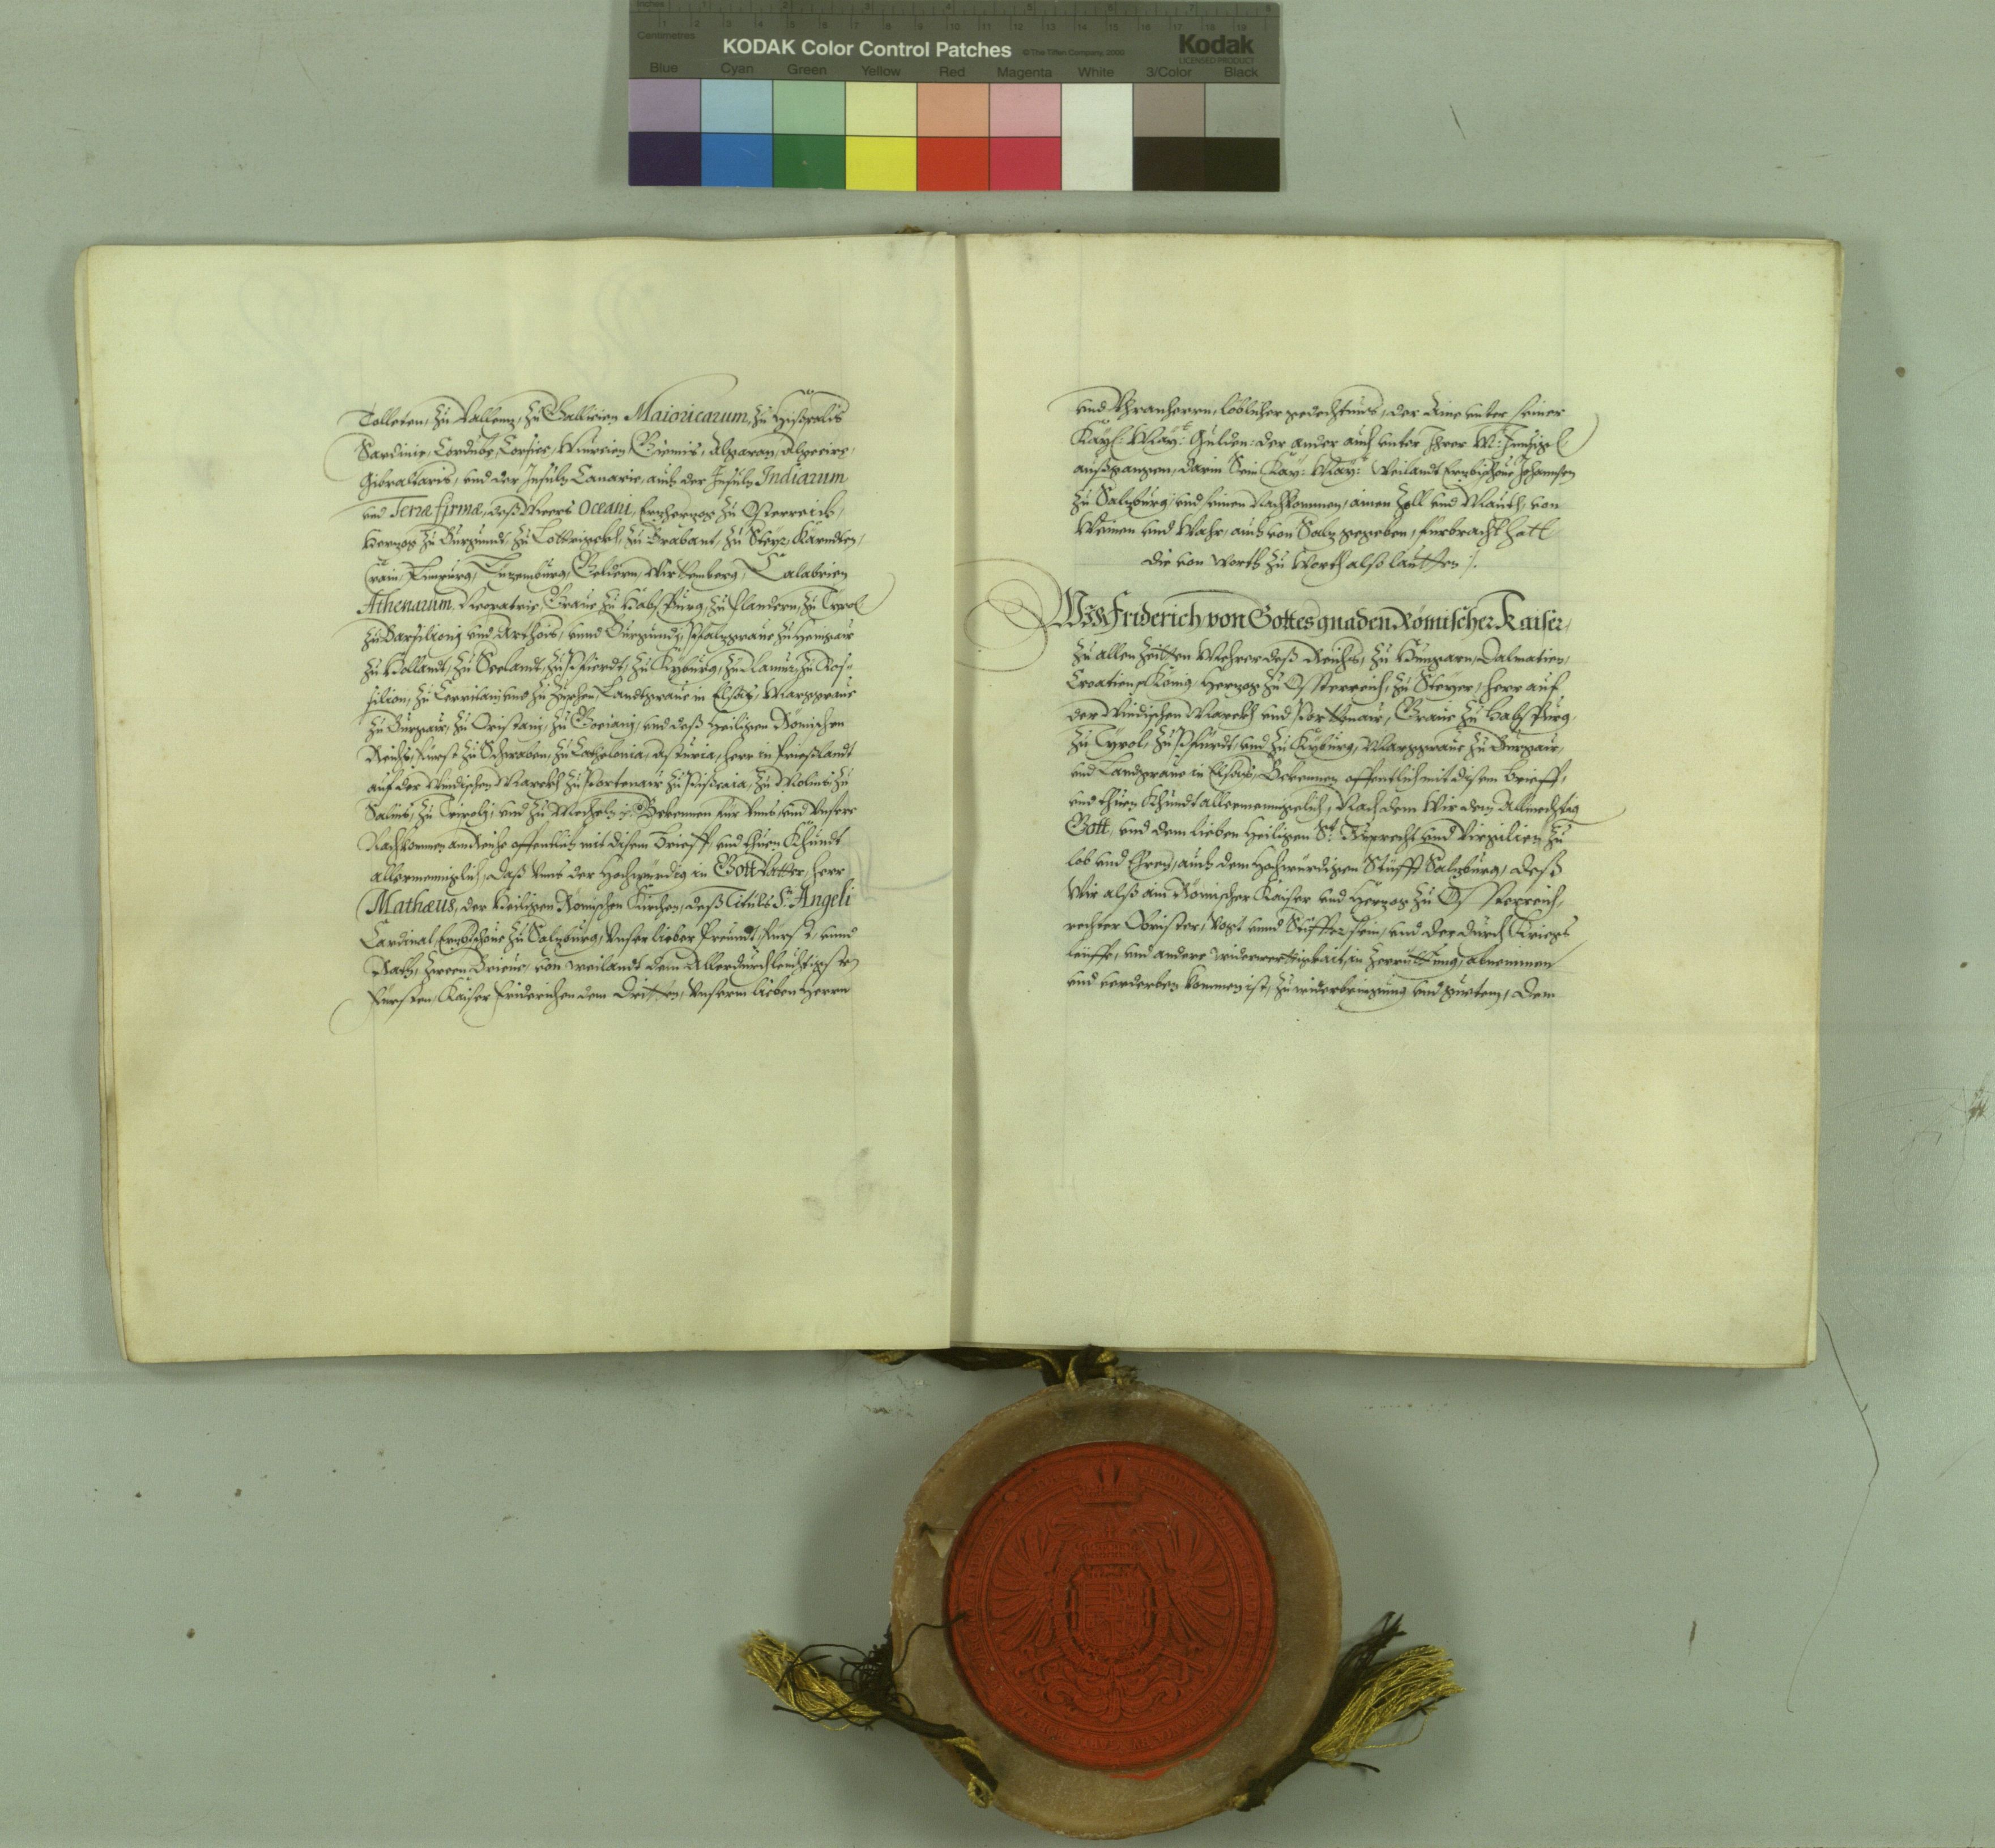 Inches 1 2 3 4 5 6 7 8
Centimetres 1 2 3 4 5 6 7 8 9 10 11 12 13 14 15 16 17 18 19
KODAK Color Control Patches © The Tiffen Company, 2000 Kodak
LICENSED PRODUCT
Blue Cyan Green Yellow Red Magenta White 3/Color Black
Tolleten, zu Vallentz, zu Gallicien Maioricarum, zu Hißpalis
Sardinie, Cordube, Corsice, Murcien, Giennis, Algaron, Algecire,
Gibraltaris, und der Insuln Canarie, auch der Insuln Indiarum
und Terræ firmæ, deß Meers Oceani, Ertzhertzog zu Österreich,
Hertzog zu Burgundt, zu Lottrigckh, zu Brabant, zu Steyr, Kärndten,
Crain, Limpurg, Lutzemburg, Geldern, Wirtemberg, Calabrien
Athenarum, Neopatrie, Graue zu Habspurg, zu Flandern, zu Tyrol
zu Barsiliony und Arthois, unnd Burgundi, Pfaltzgraue zu Henigau
zu Hollandt, zu Seelandt, zu Pfierdt, zu Kyburg, zu Namur, zu Ros-
silion, zu Cerritani, und zu Zutphen, Landtgraue in Elsaß, Marggraue
zu Burgau, zu Oristani, zu Gociani, und deß Heiligen Römischen
Reichs, Fürst zu Schwaben, zu Cathelonia, Asturia, Herr in Frießlandt
auf der Windischen Marckh zu Portenau, zu Pißcaia, zu Molins zu
Salins, zu Tripoli, und zu Mecheln etc. Bekennen für Unns, und Unsere
Nachkommen am Reiche offentlich mit disem Brieff, und thuen Khundt
allermenniglich, daß Uns der Hochwürdig in Gott Vatter, Herr
Mathæus, der Heiligen Römischen Kirchen, deß Tituls S: Angeli
Cardinal, Ertzbischoue zu Saltzburg, Unser lieber Freundt, Fürst, unnd
Rath, zween Brieue, von weilandt dem Allerdurchleuchtigsten
Fürsten, Kaiser Friderichen dem Dritten, Unserm lieben Herrn
und Uhranherrn, löblicher gedechtnus, der Eine unter seiner
Kayl: May: Gulden: der ander auch unter Ihrer M: Innsigl
außgangen, darin Sein Kay: May: Weilandt Ertzbischoue Johannsen
zu Saltzburg, und seinen Nachkommen, ainen Zoll und Mauth, von
Weinen und Wahr, auch von Saltz gegeben, fürbracht hatt
die von Worth zu Worth also lautten /.
Wir Friderich von Gottes gnaden Römischer Kaiser,
zu allen Zeitten Mehrer deß Reichs, zu Hungarn, Dalmatien,
Croatien etc König, Hertzog zu Össterreich, zu Steyer, Herr auf
der Windischen Marckh und Portenau, Graue zu Habspurg,
zu Tyrol, zu Pfürdt, und zu Kyburg, Marggraue zu Burgau,
und Landgraue in Elsaß, Bekennen offentlich mit disem Brieff,
und thuen Khundt allermenniglich, Nach dem Wir dem Allmechtig
Gott, und dem lieben Heiligen St: Rueprecht und Virgilien zu
lob und Ehren, auch dem Hochwürdigen Stüfft Saltzburg, deß
Wir alß ain Römischer Kaiser und Hertzog zu Össterreich,
rechter Obrister, Vogt unnd Stiffter sein, und der durch Kriegs
leüffe, und andere widerwertigkait, in Zerrüttung, abnemmen
und verderben kommen ist, zu widerbringung und guetem, dem